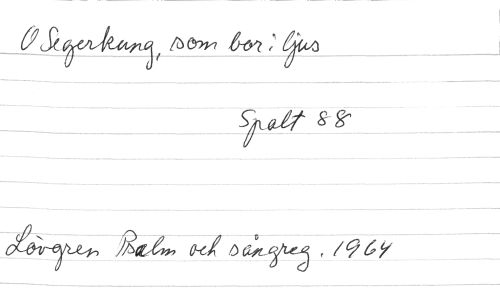 O Segerkung, som bor i ljus
Spalt 88
Lövgren Psalm och sångreg. 1964